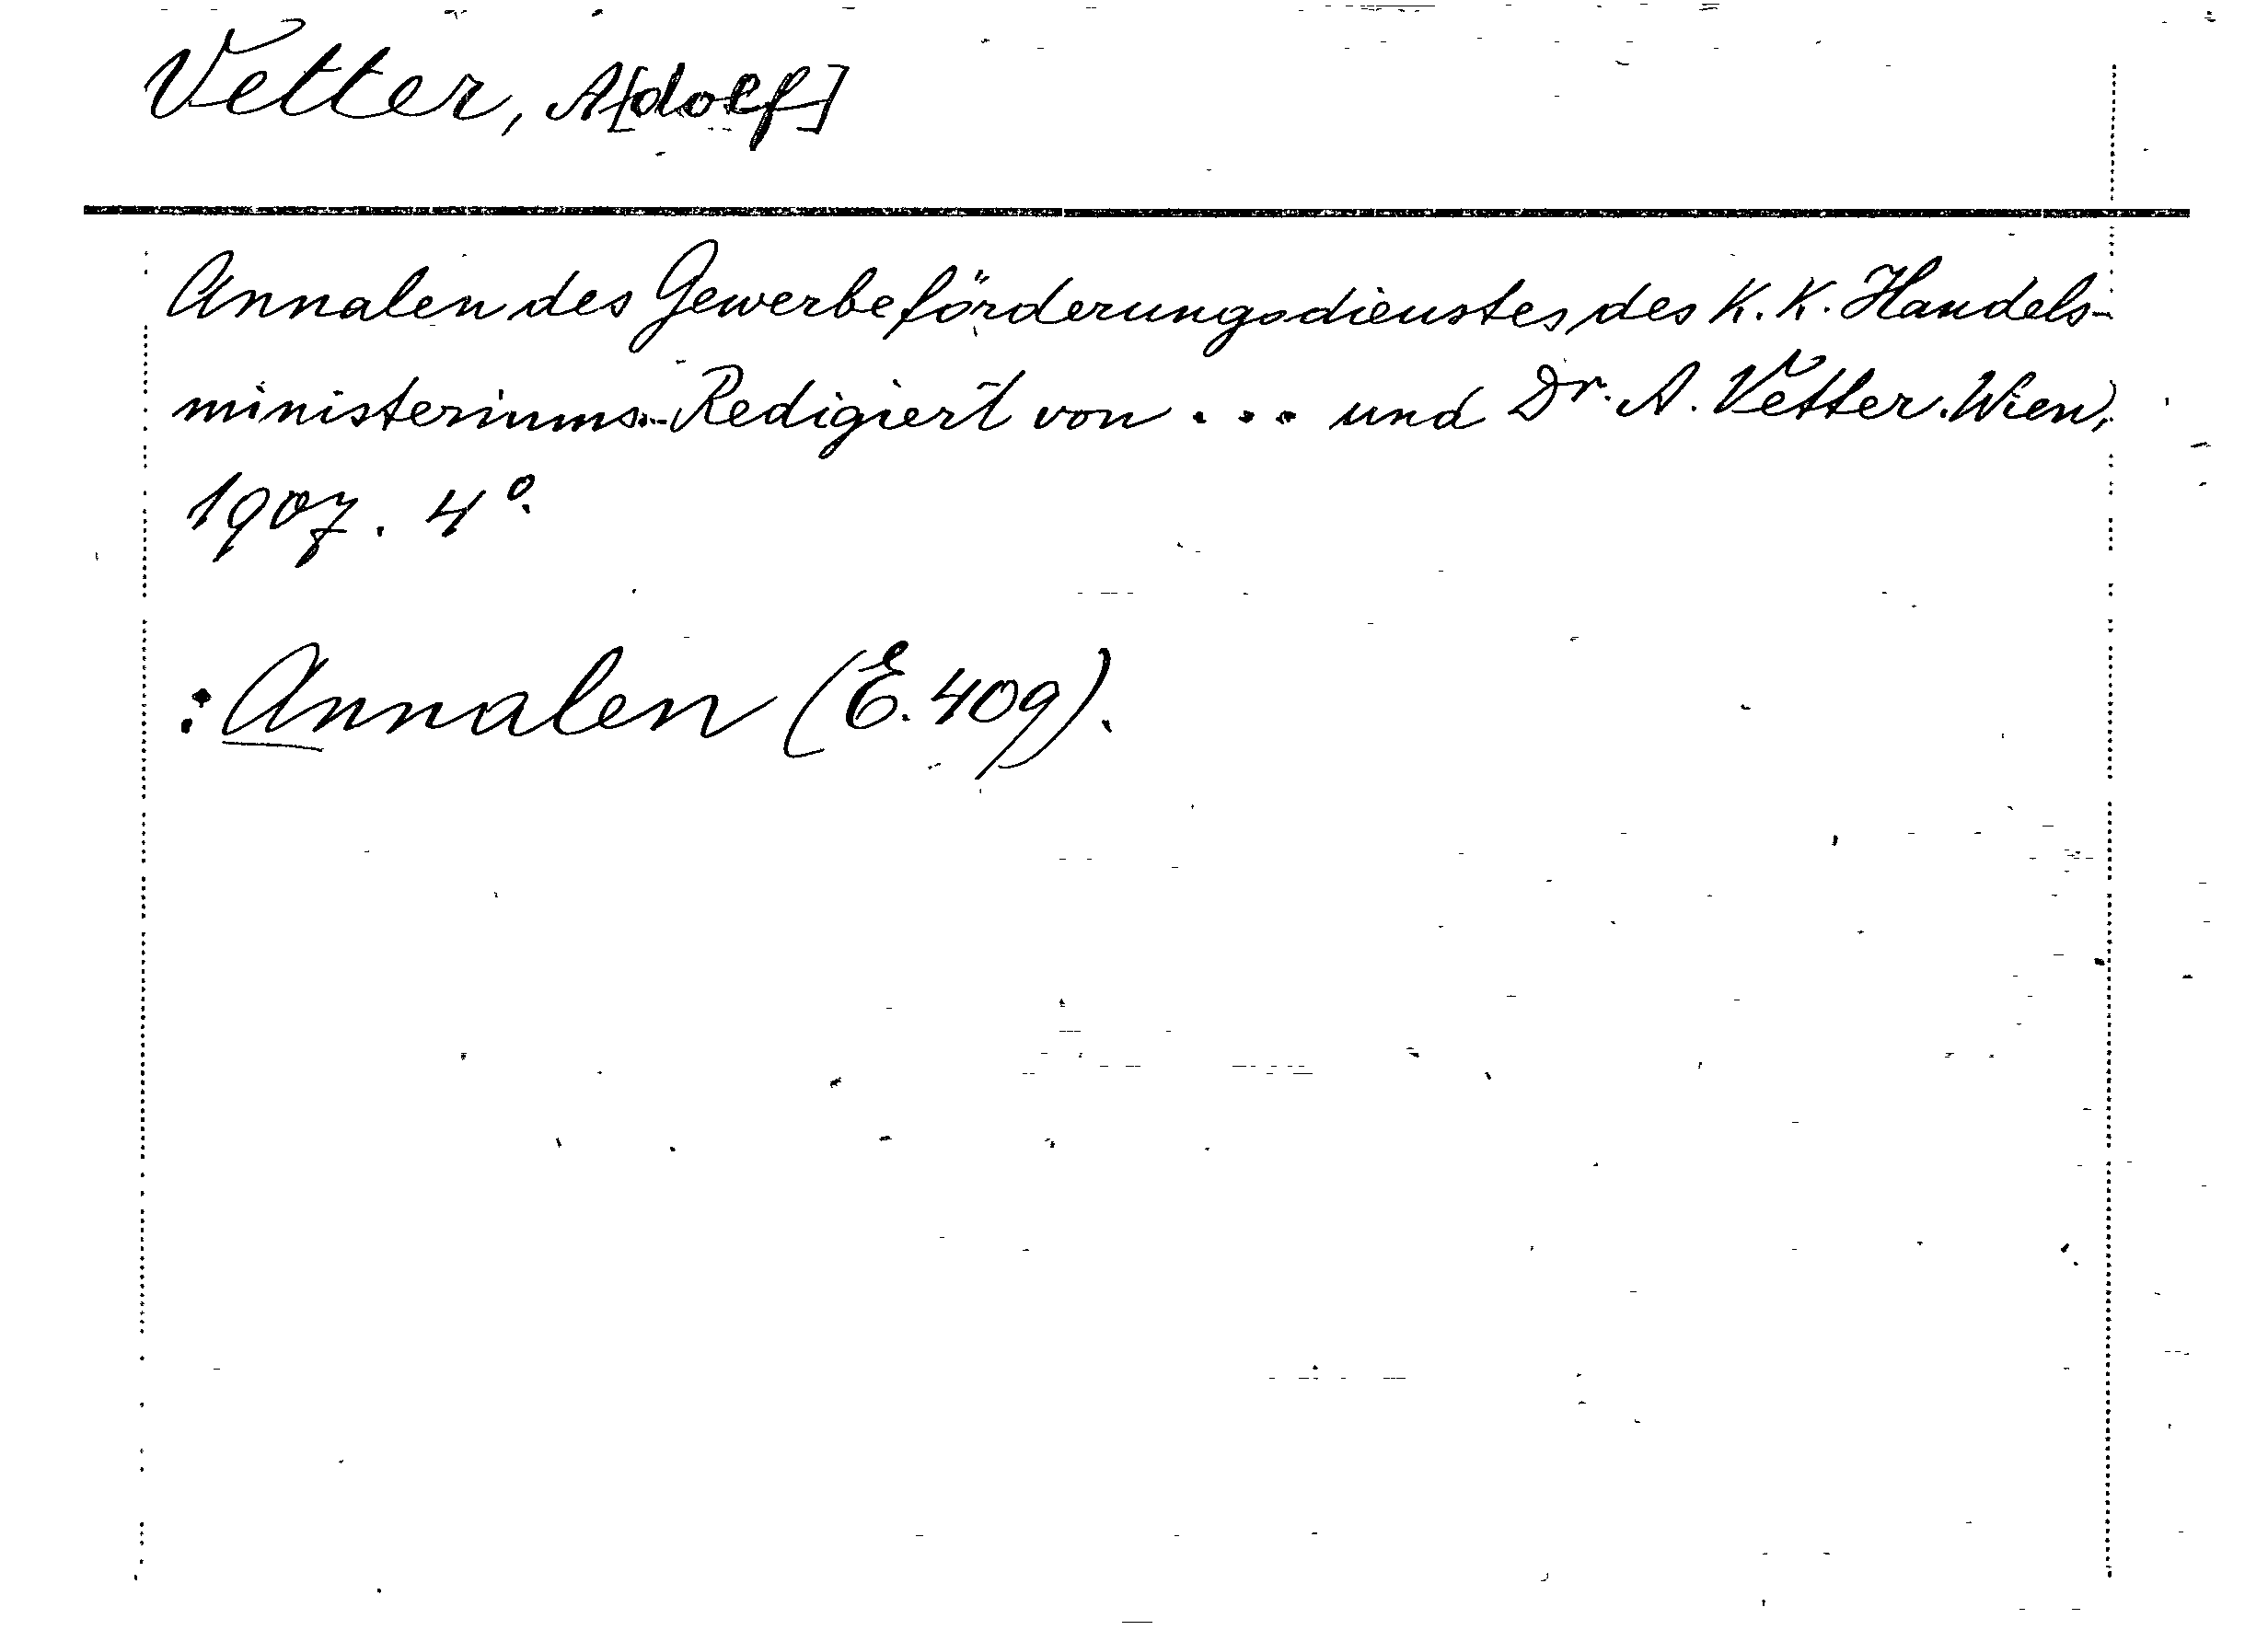 Vetter, A[dolf]
Annalen des Gewerbeförderungsdienstes des K. K. Handels-
ministeriums. Redigiert von ... und Dr. A. Vetter. Wien,
1907. 4°.
: Annalen (E. 409).